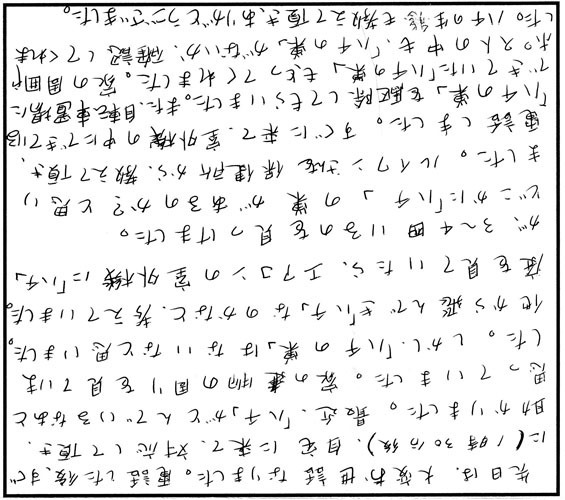 先日は、大変お世話になりました。電話した後、すぐ
に(1時30分後)、自宅に来て、対応して頂き、
助かりました。最近、「ハチ」がとんでいるなあと
思っていました。家の建物の周りを見ていま
した。しかし、「ハチの巣」はないなと思いました。
他から飛んでき「ハチ」なのかなと、考えていました。
庭を見ていたら、エアコンの室外機に「ハチ」
が、3〜4匹いるのを見つけました。
どこかに「ハチ」の巣があるのか?と思い
ました。さんを保健所から、教えて頂き、
電話しました。すぐに来て、室外機の中にできている
「ハチの巣」を駆除してもらいました。また、自転車置場に
できていた「ハチの巣」も、とってくれました。家の周囲や
ポストの中も、「ハチの巣」がないか、確認してくれま
した。ハチの生態も教えて頂き、ありがとうございました。